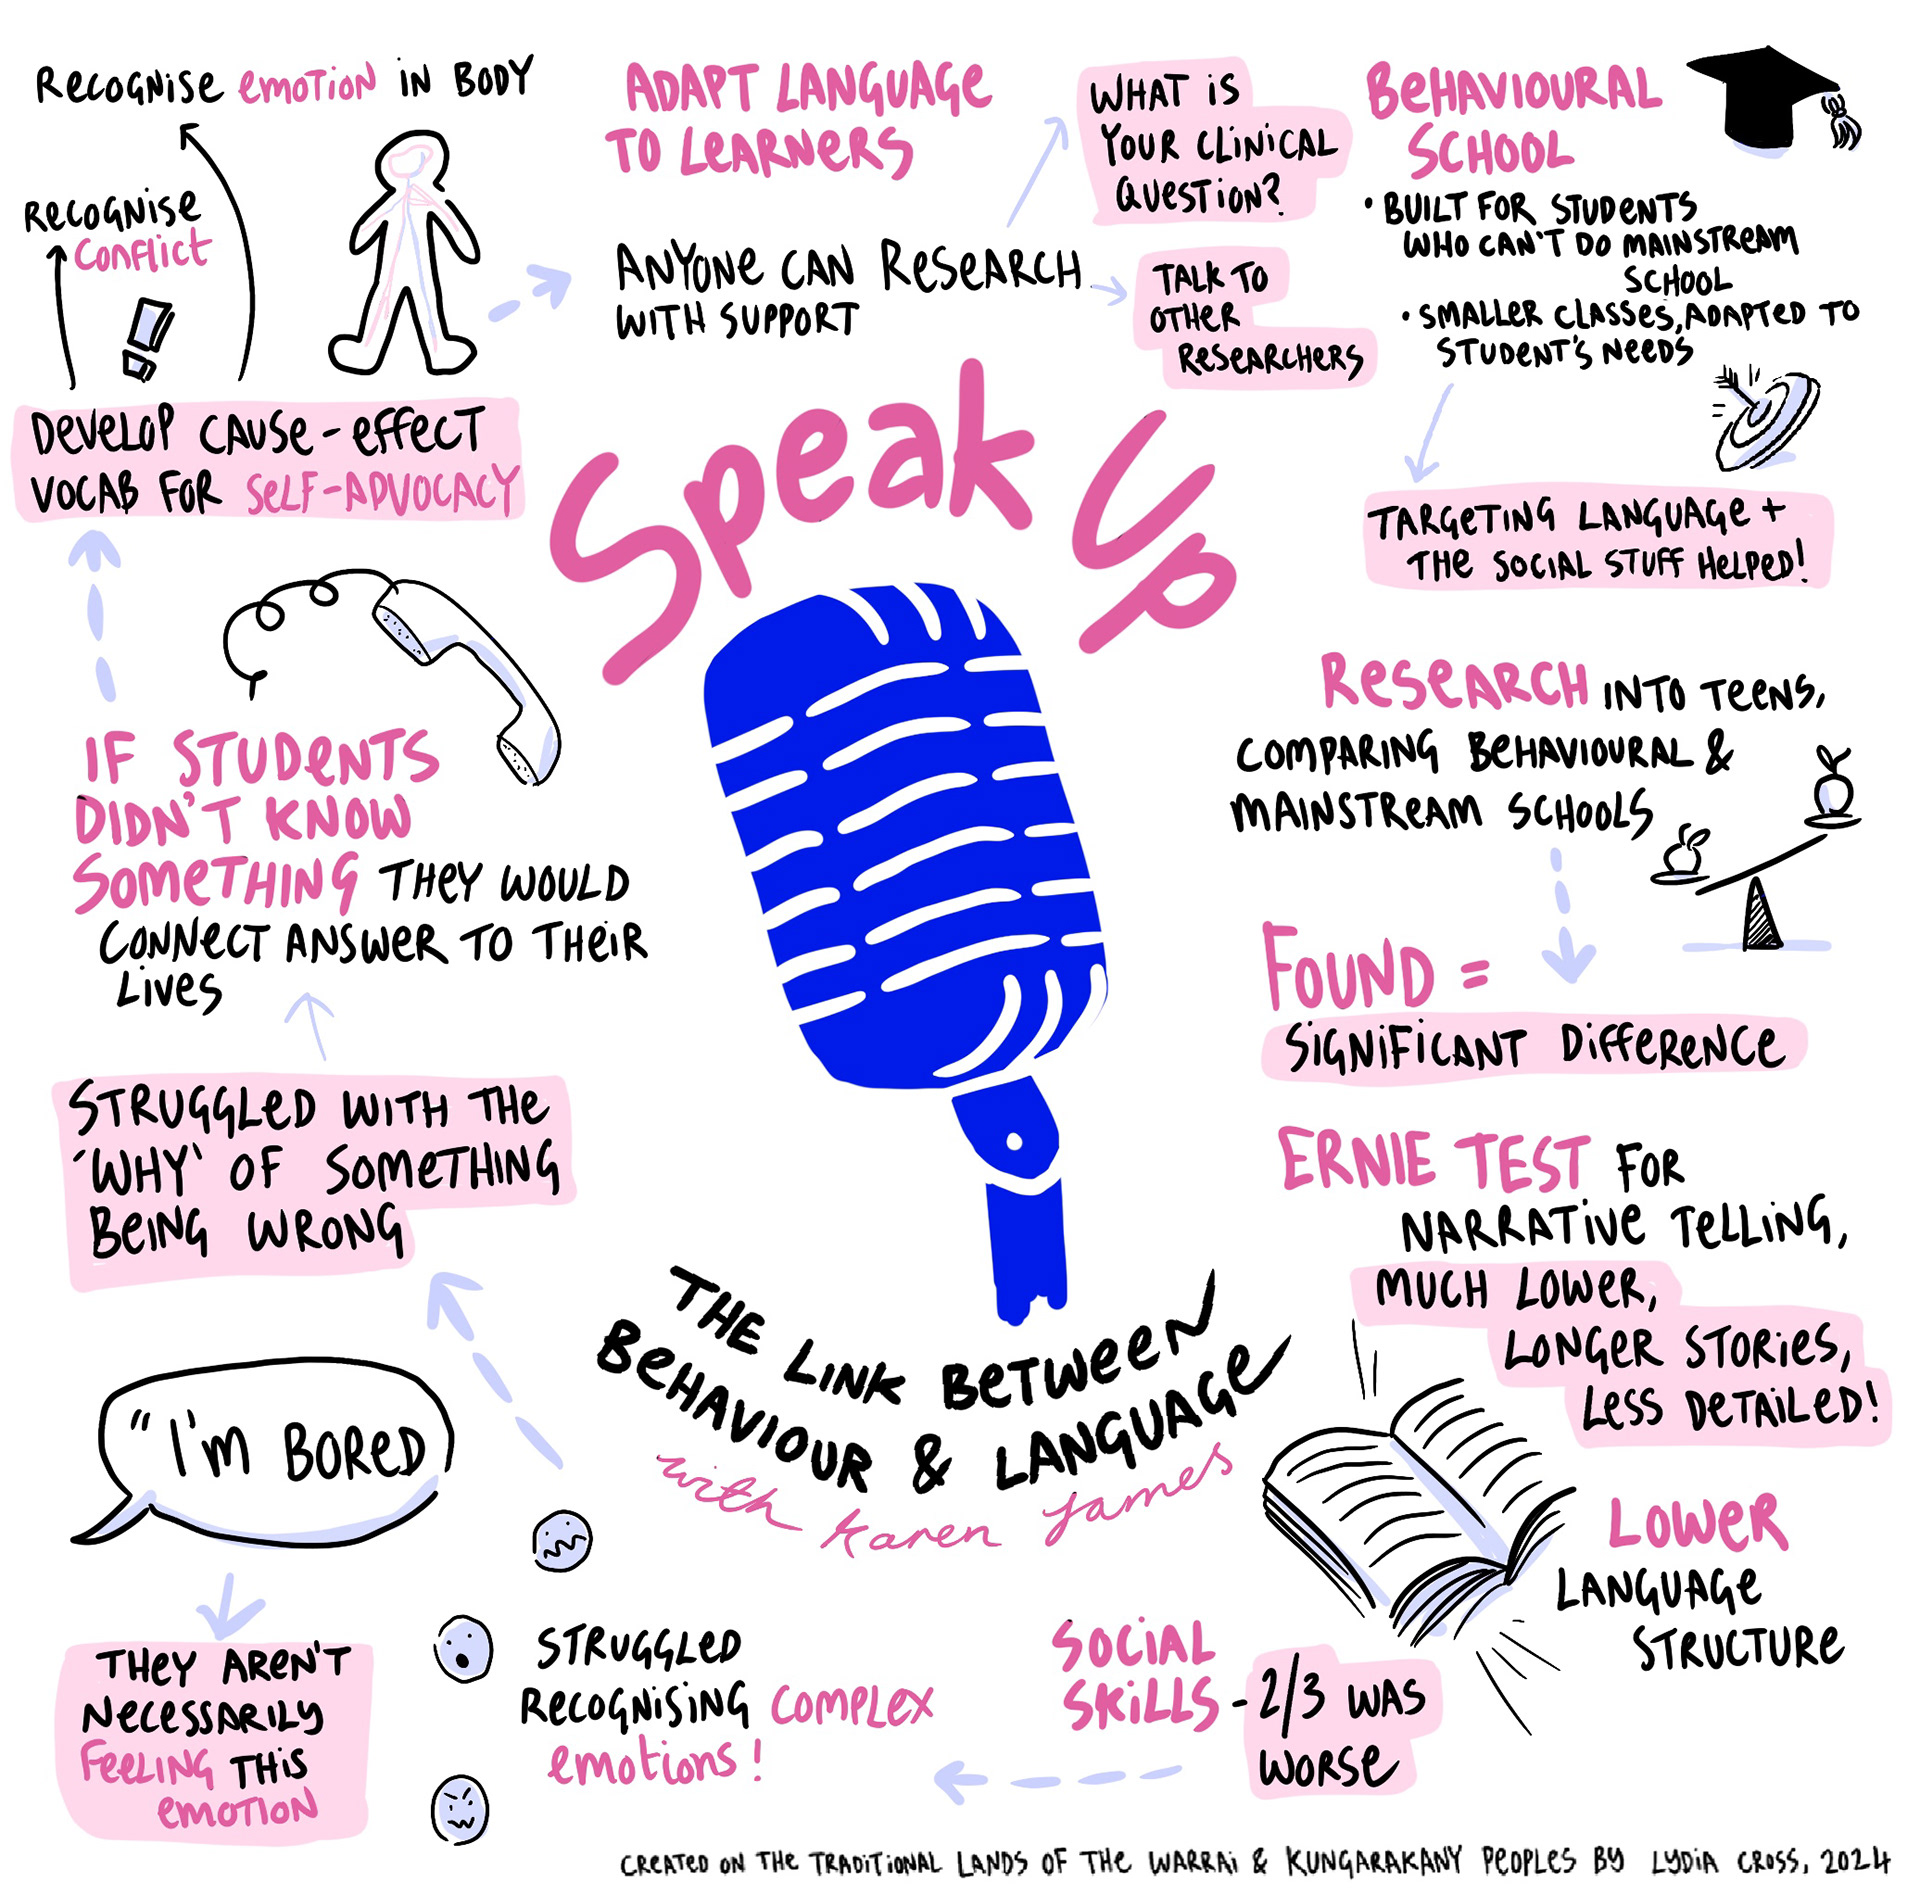 Speak Up
THE LINK BETWEEN
BEHAVIOUR & LANGUAGE
with Karen James
BEHAVIOURAL
SCHOOL
• BUILT FOR STUDENTS
WHO CAN'T DO MAINSTREAM
SCHOOL
• SMALLER CLASSES, ADAPTED TO
STUDENT'S NEEDS
TARGETING LANGUAGE +
THE SOCIAL STUFF HELPED!
RESEARCH INTO TEENS,
COMPARING BEHAVIOURAL &
MAINSTREAM SCHOOLS
FOUND =
SIGNIFICANT DIFFERENCE
ERNIE TEST FOR
NARRATIVE TELLING,
MUCH LOWER,
LONGER STORIES,
LESS DETAILED!
LOWER
LANGUAGE
STRUCTURE
SOCIAL
SKILLS - 2/3 WAS
WORSE
STRUGGLED
RECOGNISING COMPLEX
EMOTIONS!
"I'M BORED
THEY AREN'T
NECESSARILY
FEELING THIS
EMOTION
STRUGGLED WITH THE
'WHY' OF SOMETHING
BEING WRONG
IF STUDENTS
DIDN'T KNOW
SOMETHING THEY WOULD
CONNECT ANSWER TO THEIR
LIVES
DEVELOP CAUSE-EFFECT
VOCAB FOR SELF-ADVOCACY
RECOGNISE
CONFLICT
!
RECOGNISE EMOTION IN BODY
ADAPT LANGUAGE
TO LEARNERS
ANYONE CAN RESEARCH
WITH SUPPORT
WHAT IS
YOUR CLINICAL
QUESTION?
TALK TO
OTHER
RESEARCHERS
CREATED ON THE TRADITIONAL LANDS OF THE WARRAI & KUNGARAKANY PEOPLES BY LYDIA CROSS, 2024